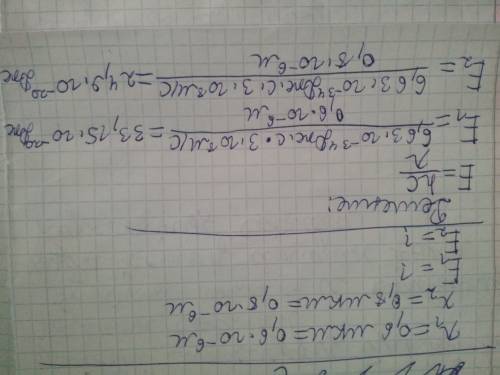 λ₁ = 0,6 мкм = 0,6 · 10⁻⁶ м
λ₂ = 0,8 мкм = 0,8 · 10⁻⁶ м
E₁ = ?
E₂ = ?
Решение:
E = hc/λ
E₁ = 6,63 · 10⁻³⁴ Дж · с · 3 · 10⁸ м/с / 0,6 · 10⁻⁶ м = 33,15 · 10⁻²⁰ Дж
E₂ = 6,63 · 10⁻³⁴ Дж · с · 3 · 10⁸ м/с / 0,8 · 10⁻⁶ м = 24,9 · 10⁻²⁰ Дж